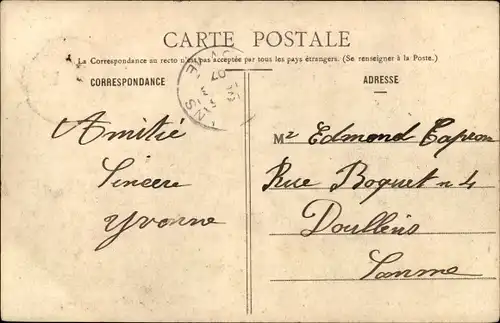 CARTE POSTALE
La Correspondance au recto n'est pas acceptée par tous les pays étrangers. (Se renseigner à la Poste.)
CORRESPONDANCE
ADRESSE
Amitié
Sincère
Yvonne
Mr Edmond Capron
Rue Boquet n 4
Doullens
Somme